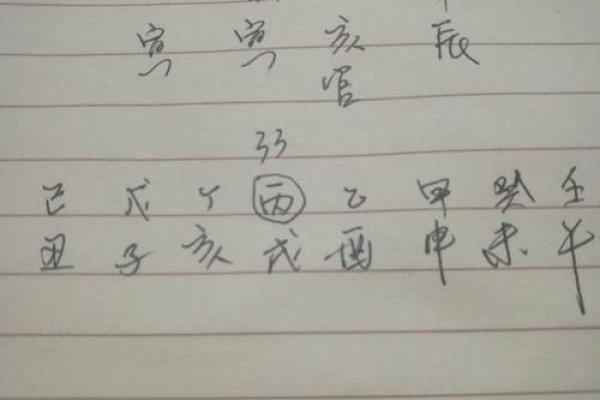 寅 寅 亥 辰
官
33
己 戊 丁 丙 乙 甲 癸 壬
丑 子 亥 戌 酉 申 未 午